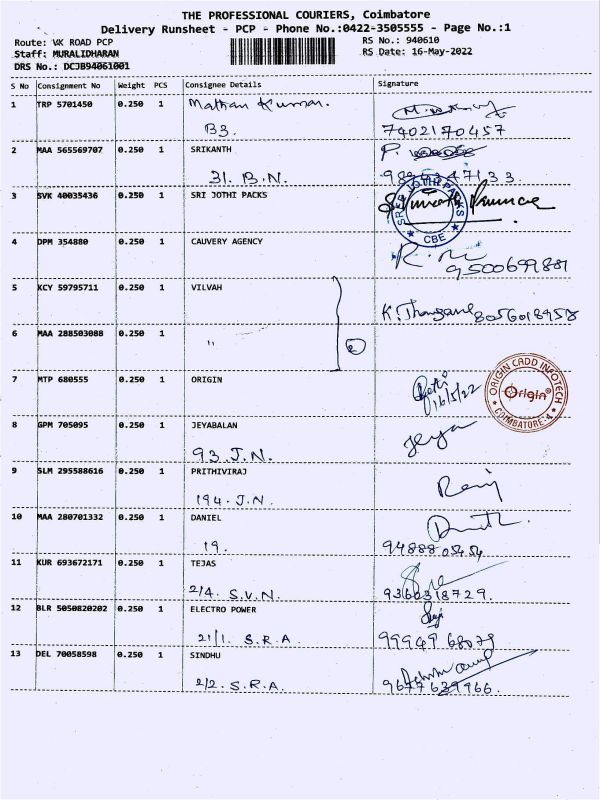 THE PROFESSIONAL COURIERS, Coimbatore
Delivery Runsheet - PCP - Phone No.:0422-3505555 - Page No.:1
Route: VK ROAD PCP
RS No.: 940610
Staff: MURALIDHARAN
RS Date: 16-May-2022
DRS No.: DCJB94061001
S No Consignment No Weight PCS Consignee Details Signature
1 TRP 5701450 0.250 1 Mathan Kumar.
B3. 7402170457
2 MAA 565569707 0.250 1 SRIKANTH P.
31. B.N.
3 SVK 40035436 0.250 1 SRI JOTHI PACKS
SREE JOTHI PACKS
★ CBE ★
4 DPM 354880 0.250 1 CAUVERY AGENCY
9500699881
5 KCY 59795711 0.250 1 VILVAH
8056018958
6 MAA 288503088 0.250 1 "
2
7 MTP 680555 0.250 1 ORIGIN
16/5/22
ORIGIN CADD INFOTECH
Origin®
★ COIMBATORE-4 ★
8 GPM 705095 0.250 1 JEYABALAN Jeya
93. J.N.
9 SLM 295588616 0.250 1 PRITHIVIRAJ
194. J.N.
10 MAA 280701332 0.250 1 DANIEL
19. 9488805454
11 KUR 693672171 0.250 1 TEJAS
2/4. S.V.N. 9360318729.
12 BLR 5050820202 0.250 1 ELECTRO POWER
21/1. S.R.A. 99949 68079
13 DEL 70058598 0.250 1 SINDHU
2/2. S.R.A. 9677639966.